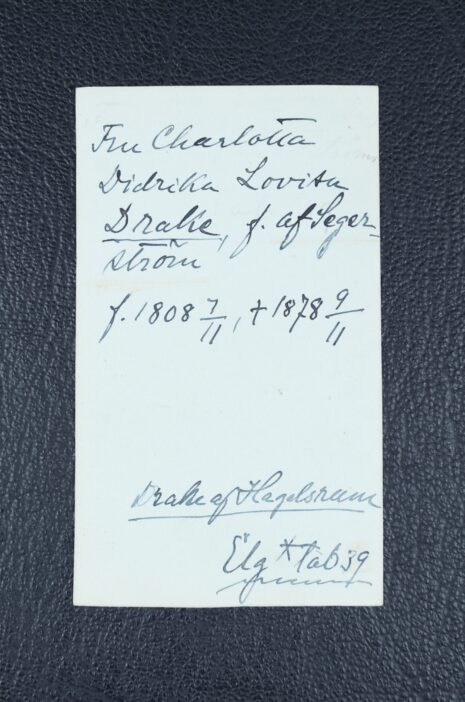 Fru Charlotta
Didrika Lovisa
Drake, f. af Seger-
ström
f. 1808 7/11, † 1878 9/11
Drake af Hagelsrum
Elg * tab 39